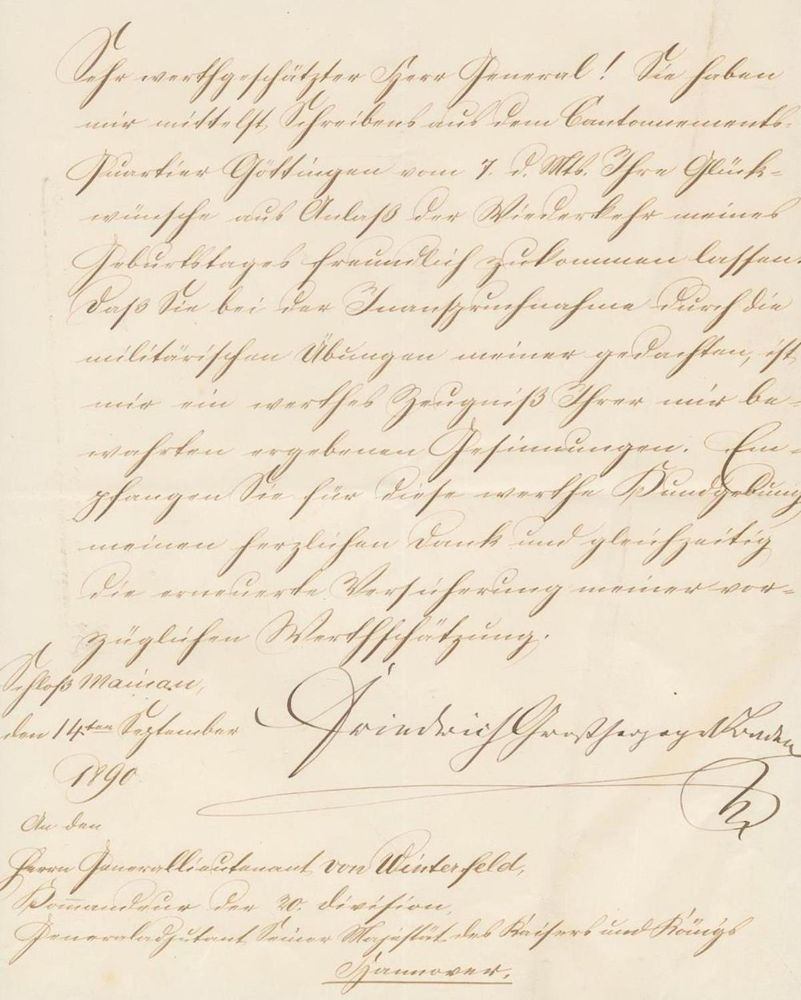 Sehr werthgeschätzter Herr General! Sie haben
mir mittelst Schreibens aus dem Cantonnements-
Quartier Göttingen vom 7. d. Mts. Ihre Glück-
wünsche aus Anlaß der Wiederkehr meines
Geburtstages freundlich zukommen lassen.
Daß Sie bei der Inanspruchnahme durch die
militärischen Übungen meiner gedachten, ist
mir ein werthes Zeugniß Ihrer mir be-
wahrten ergebenen Gesinnungen. Em-
pfangen Sie für diese werthe Kundgebung
meinen herzlichen Dank und gleichzeitig
die erneuerte Versicherung meiner vor-
züglichen Werthschätzung.
Schloß Mainau,
den 14ten September
1890
Friedrich Großherzog v Baden
An den
Herrn Generallieutenant von Winterfeld,
Kommandeur der 20. Division,
Generaladjutant Seiner Majestät des Kaisers und Königs
Hannover.